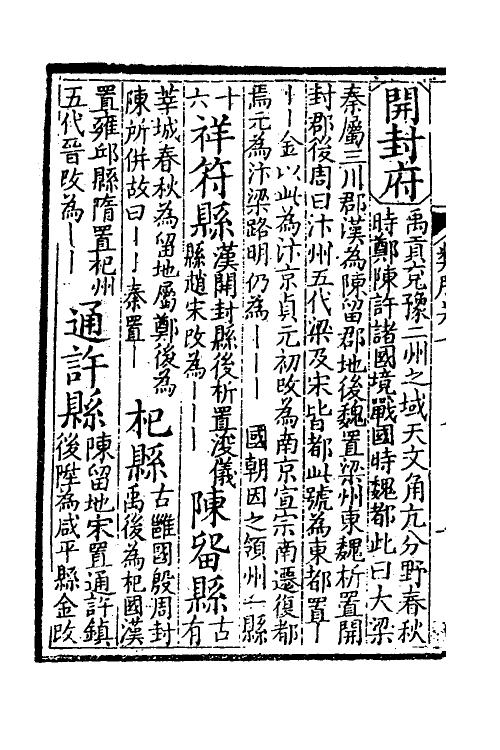 開封府
禹貢兗豫二州之域天文角亢分野春秋
時鄭陳許諸國境戰國時魏都此曰大梁
秦屬三川郡漢為陳留郡地後魏置梁州東魏析置開
封郡後周曰汴州五代梁及宋皆都此號為東都置丨
丨丨金以此為汴京貞元初改為南京宣宗南遷復都
焉元為汴梁路明仍為丨丨丨 國朝因之領州一縣
十
六
祥符縣
漢開封縣後析置浚儀
縣趙宋改為丨丨丨
陳留縣
古
有
莘城春秋為留地屬鄭後為
陳所併故曰丨丨秦置丨
杞縣
古雝國殷周封
禹後為杞國漢
置雍邱縣隋置杞州
五代晉改為丨丨
通許縣
陳留地宋置通許鎮
後陞為咸平縣金改